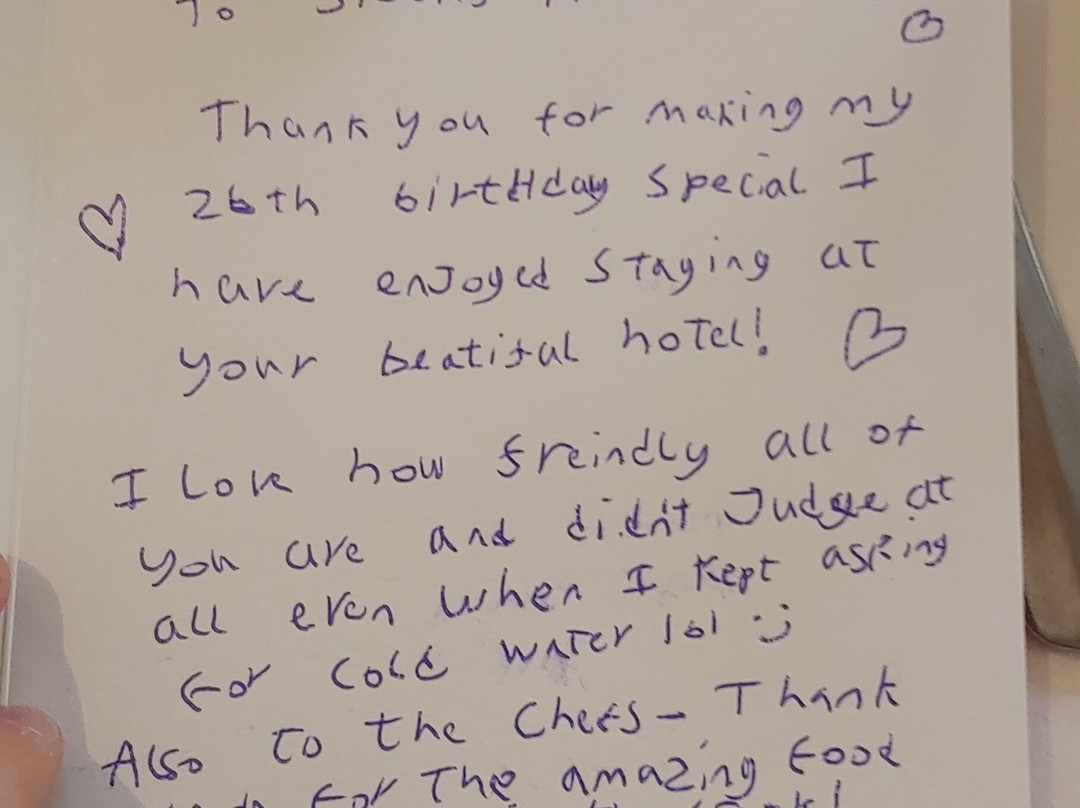 To
Thank you for making my
26th birtHday special I
have enJoyed staying at
your beatiful hotel!
I Love how freindly all of
you are and didn't Judge at
all even when I kept asking
for cold water lol :)
Also to the Chefs - Thank
for The amazing food